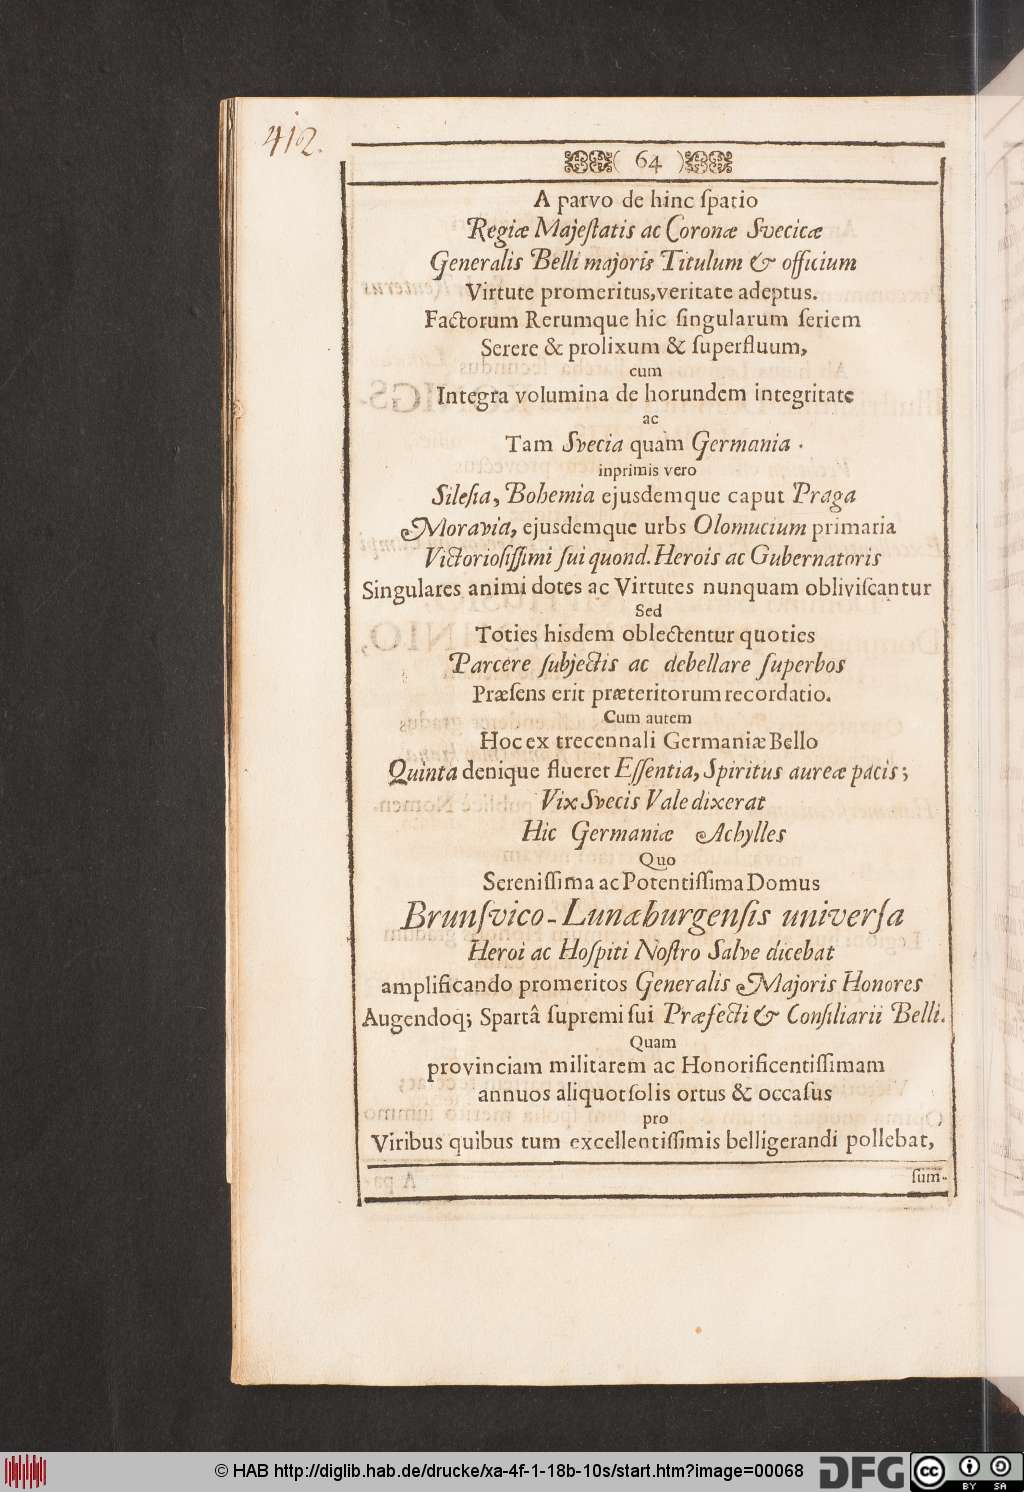 412.
( 64 )
A parvo de hinc ſpatio
Regiæ Majeſtatis ac Coronæ Svecicæ
Generalis Belli majoris Titulum & officium
Virtute promeritus,veritate adeptus.
Factorum Rerumque hic ſingularum ſeriem
Serere & prolixum & ſuperfluum,
cum
Integra volumina de horundem integritate
ac
Tam Svecia quam Germania .
inprimis vero
Sileſia, Bohemia ejusdemque caput Praga
Moravia, ejusdemque urbs Olomucium primaria
Victorioſiſſimi ſui quond. Herois ac Gubernatoris
Singulares animi dotes ac Virtutes nunquam obliviſcantur
Sed
Toties hisdem oblectentur quoties
Parcere ſubjectis ac debellare ſuperbos
Præſens erit præteritorum recordatio.
Cum autem
Hoc ex trecennali Germaniæ Bello
Quinta denique flueret Eſſentia, Spiritus aureæ pacis;
Vix Svecis Vale dixerat
Hic Germaniæ Achylles
Quo
Sereniſſima ac Potentiſſima Domus
Brunſvico-Lunæburgenſis univerſa
Heroi ac Hoſpiti Noſtro Salve dicebat
amplificando promeritos Generalis Majoris Honores
Augendoq; Spartâ ſupremi ſui Præfecti & Conſiliarii Belli.
Quam
provinciam militarem ac Honorificentiſſimam
annuos aliquot ſolis ortus & occaſus
pro
Viribus quibus tum excellentiſſimis belligerandi pollebat,
ſum-
© HAB http://diglib.hab.de/drucke/xa-4f-1-18b-10s/start.htm?image=00068
DFG
cc
BY SA